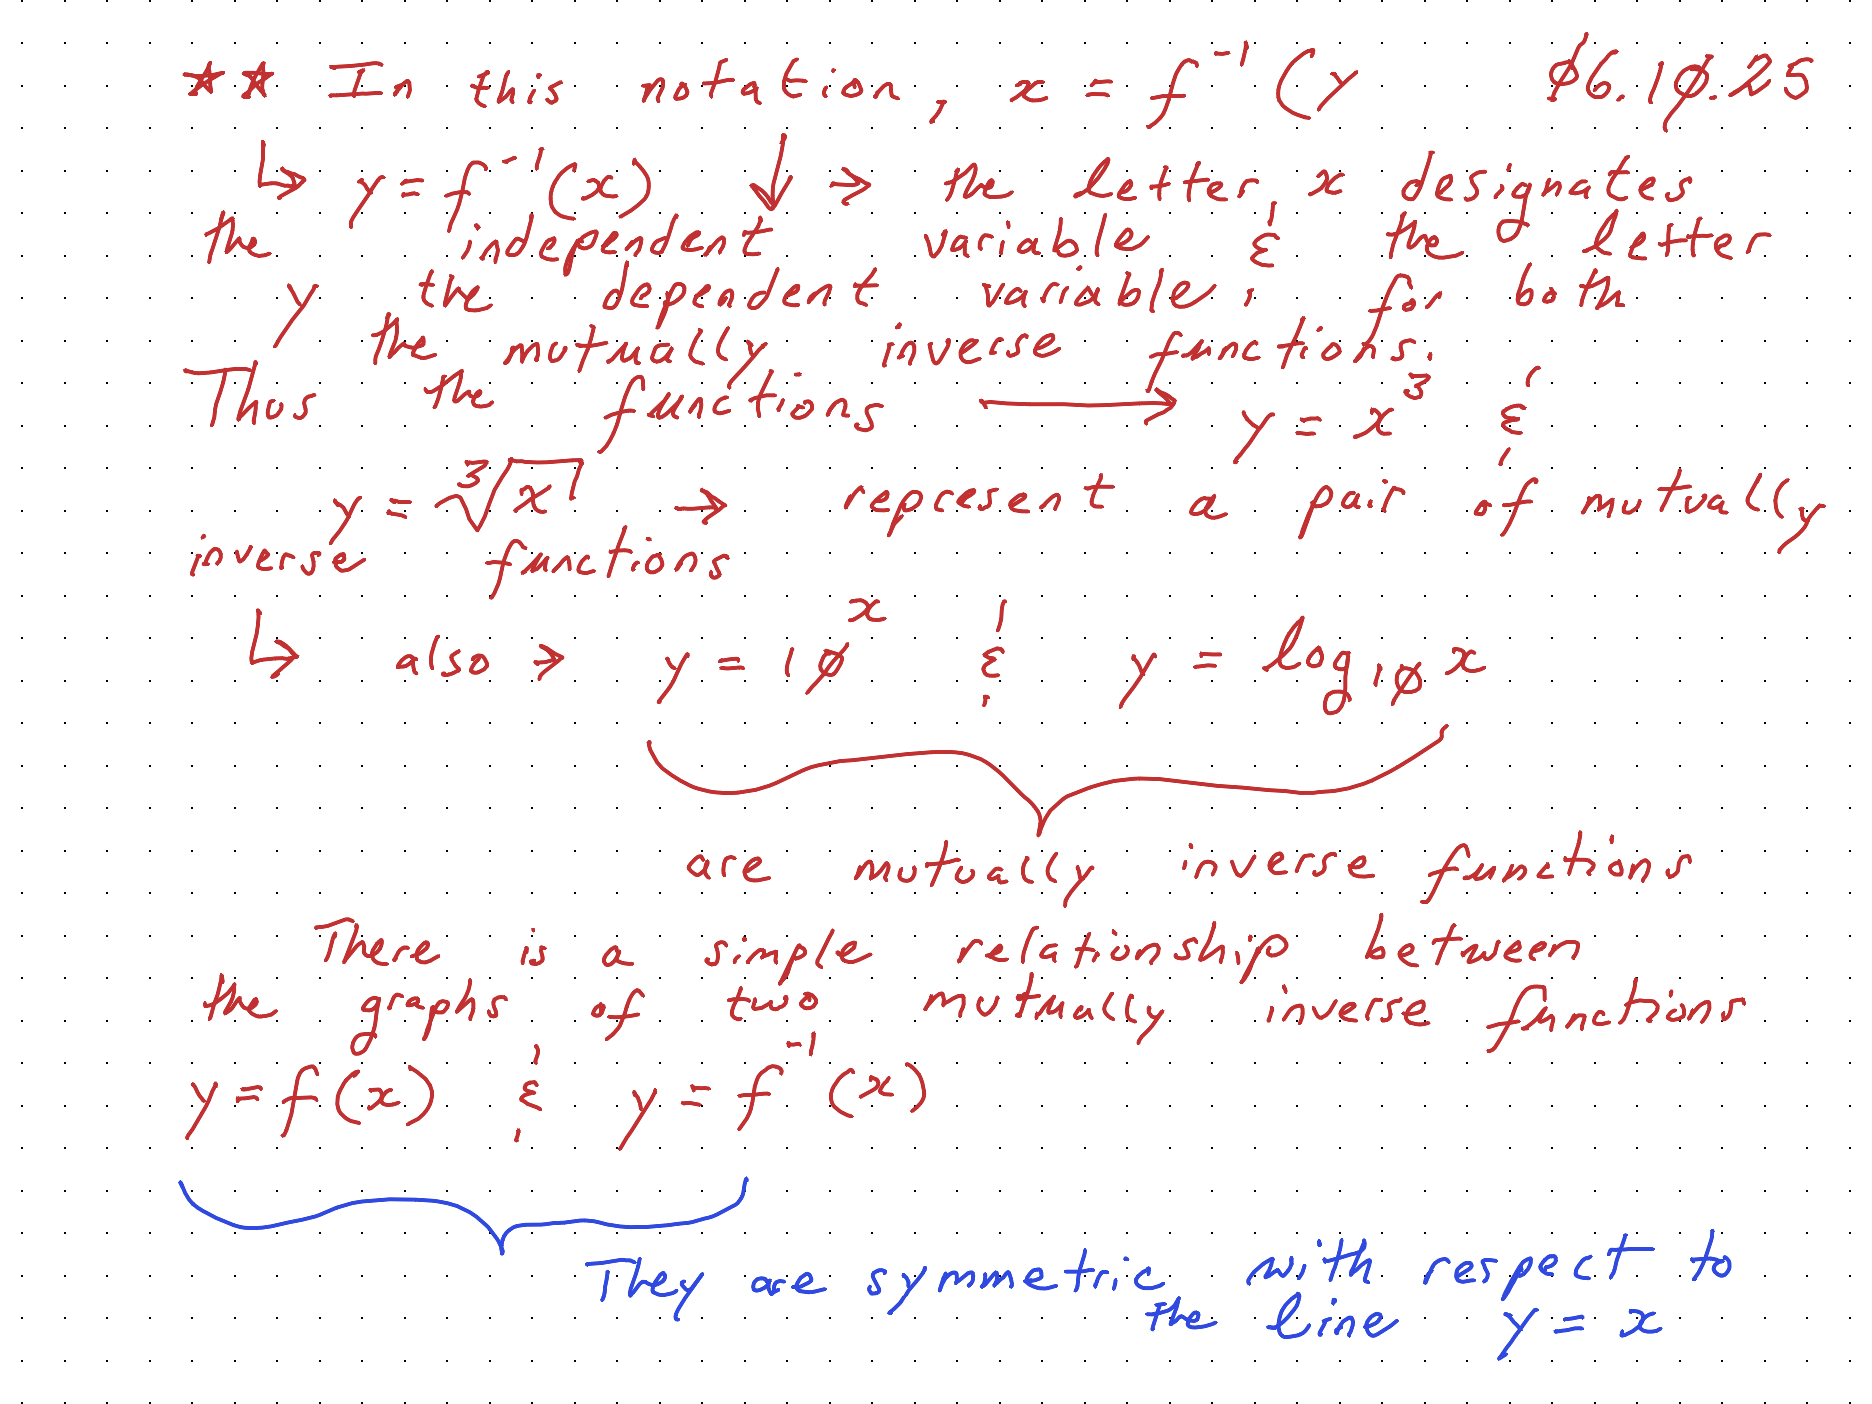 ★★ In this notation, x = f⁻¹(y 06.10.25
↳ y = f⁻¹(x) ↓ → the letter x designates
the independent variable & the letter
y the dependent variable, for both
the mutually inverse functions.
Thus the functions → y = x³ &
y = ∛x → represent a pair of mutually
inverse functions
↳ also → y = 10ˣ & y = log₁₀ x
are mutually inverse functions
There is a simple relationship between
the graphs of two mutually inverse functions
y = f(x) & y = f⁻¹(x)
They are symmetric with respect to
the line y = x